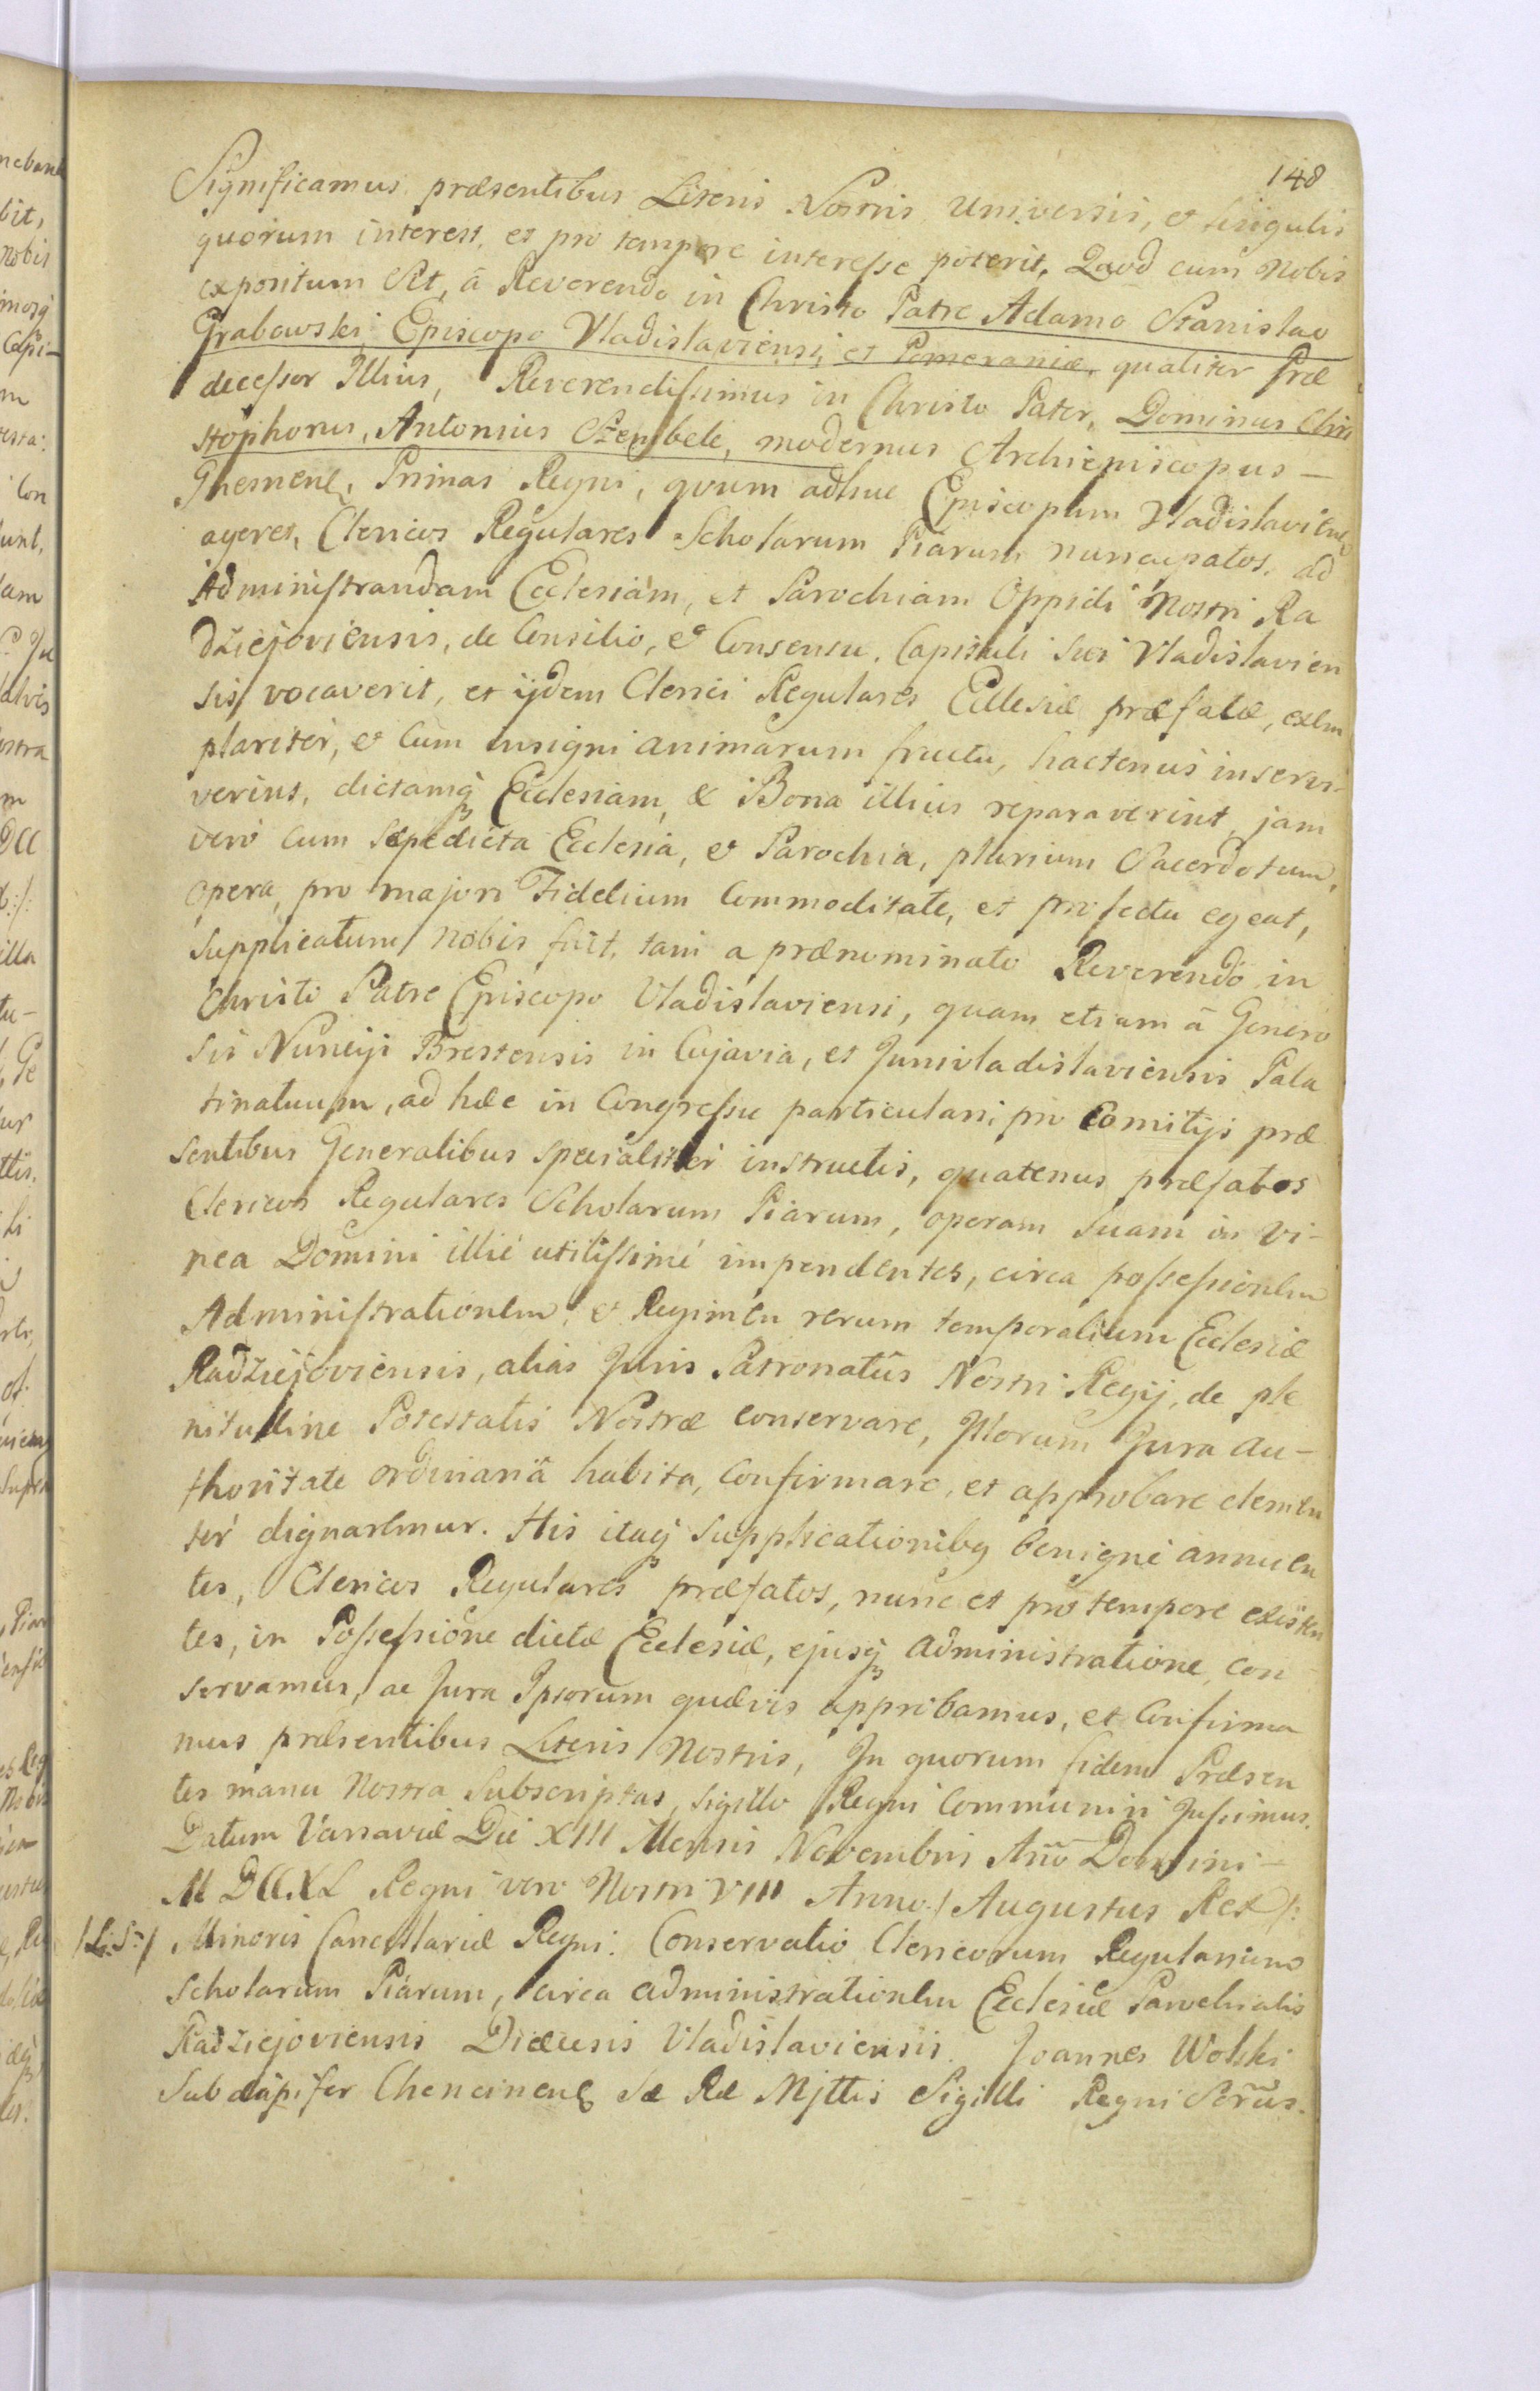 148
Significamus præsentibus Literis Nostris Universis, et singulis
quorum interest, et pro tempore interesse poterit, Quod cum Nobis
expositum sit, à Reverendo in Christo Patre Adamo Stanislao
Grabowski, Episcopo Vladislaviensi, et Pomeraniæ, qualiter Præ
decessor Illius, Reverendissimus in Christo Pater, Dominus Chri
stophorus, Antonius Szembek, modernus Archiepiscopus –
Gnesnens, Primas Regni, quum adhuc Episcopum Vladislaviens
ageret, Clericos Regulares Scholarum Piarum nuncupatos, ad
Administrandam Ecclesiam, et Parochiam Oppidi Nostri Ra
dziejoviensis, de Consilio, et Consensu, Capituli sui Vladislavien
sis vocaverit, et ijdem Clerici Regulares Ecclesiæ præfatæ, exem
plariter, et cum insigni animarum fructu, hactenus inservi-
verint, dictamq Ecclesiam, & Bona illius reparaverint, jam
vero cum sæpedicta Ecclesia, et Parochia, plurium Sacerdotum,
opera, pro majori Fidelium Commoditate, et profectu egeat,
supplicatum nobis fuit, tam a prænominato Reverendo in
Christo Patre Episcopo Vladislaviensi, quam etiam à Genero
sis Nuncijs Brestensis in Cujavia, et Junivladislaviensis Pala
tinatuum, ad hæc in Congressu particulari, pro Comitijs præ
sentibus Generalibus specialiter instructis, quatenus præfatos
Clericos Regulares Scholarum Piarum, operam suam in vi-
nea Domini illic utilissimé impendentes, circa possessionem
Administrationem, et Regimen rerum temporalium Ecclesiæ
Radziejoviensis, alias Juris Patronatûs Nostri Regij, de ple
nitudine Potestatis Nostræ conservare, Illorum Jura au-
thoritate ordinariâ habita, confirmare, et approbare clemen
ter dignaremur. His itaq supplicationibq benigné annuen
tes, Clericos Regulares præfatos, nunc et pro tempore existen
tes, in Possessione dictæ Ecclesiæ, ejusq administratione, con
servamus, ac Jura Ipsorum quævis approbamus, et confirma
mus præsentibus Literis Nostris, In quorum fidem Præsen
tes manu Nostra Subscriptas, sigillo Regni Communiri Jussimus.
Datum Varsaviæ Die XIII Mensis Novembris Ann̄o Domini –
M DCCXL Regni vero Nostri VIII Anno / Augustus Rex /:
/L: S:/ Minoris Cancellariæ Regni. Conservatio Clericorum Regularium
Scholarum Piarum, circa administrationem Ecclesiæ Parochialis
Radziejoviensis Diæcesis Vladislaviensis. Joannes Wolski
Subdapifer Chencinens Sæ Ræ Mjttis Sigilli Regni Sec̄rius.